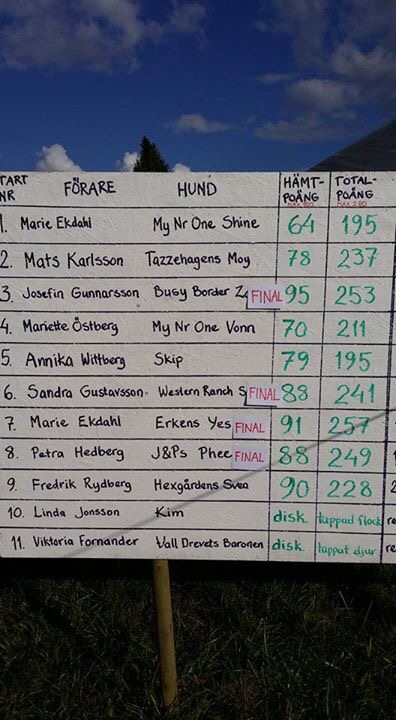 START NR FÖRARE HUND HÄMT-POÄNG TOTAL-POÄNG
1. Marie Ekdahl My Nr One Shine 64 195
2. Mats Karlsson Tazzehagens Moy 78 237
3. Josefin Gunnarsson Busy Border FINAL 95 253
4. Mariette Östberg My Nr One Vonn 70 211
5. Annika Wittberg Skip 79 195
6. Sandra Gustavsson Western Ranch S FINAL 88 241
7. Marie Ekdahl Erkens Yes FINAL 91 257
8. Petra Hedberg J&Ps Phee FINAL 88 249
9. Fredrik Rydberg Hexgårdens Svea 90 228
10. Linda Jonsson Kim disk. tappad flock
11. Viktoria Fornander Vall Drevets Baronen disk. tappat djur